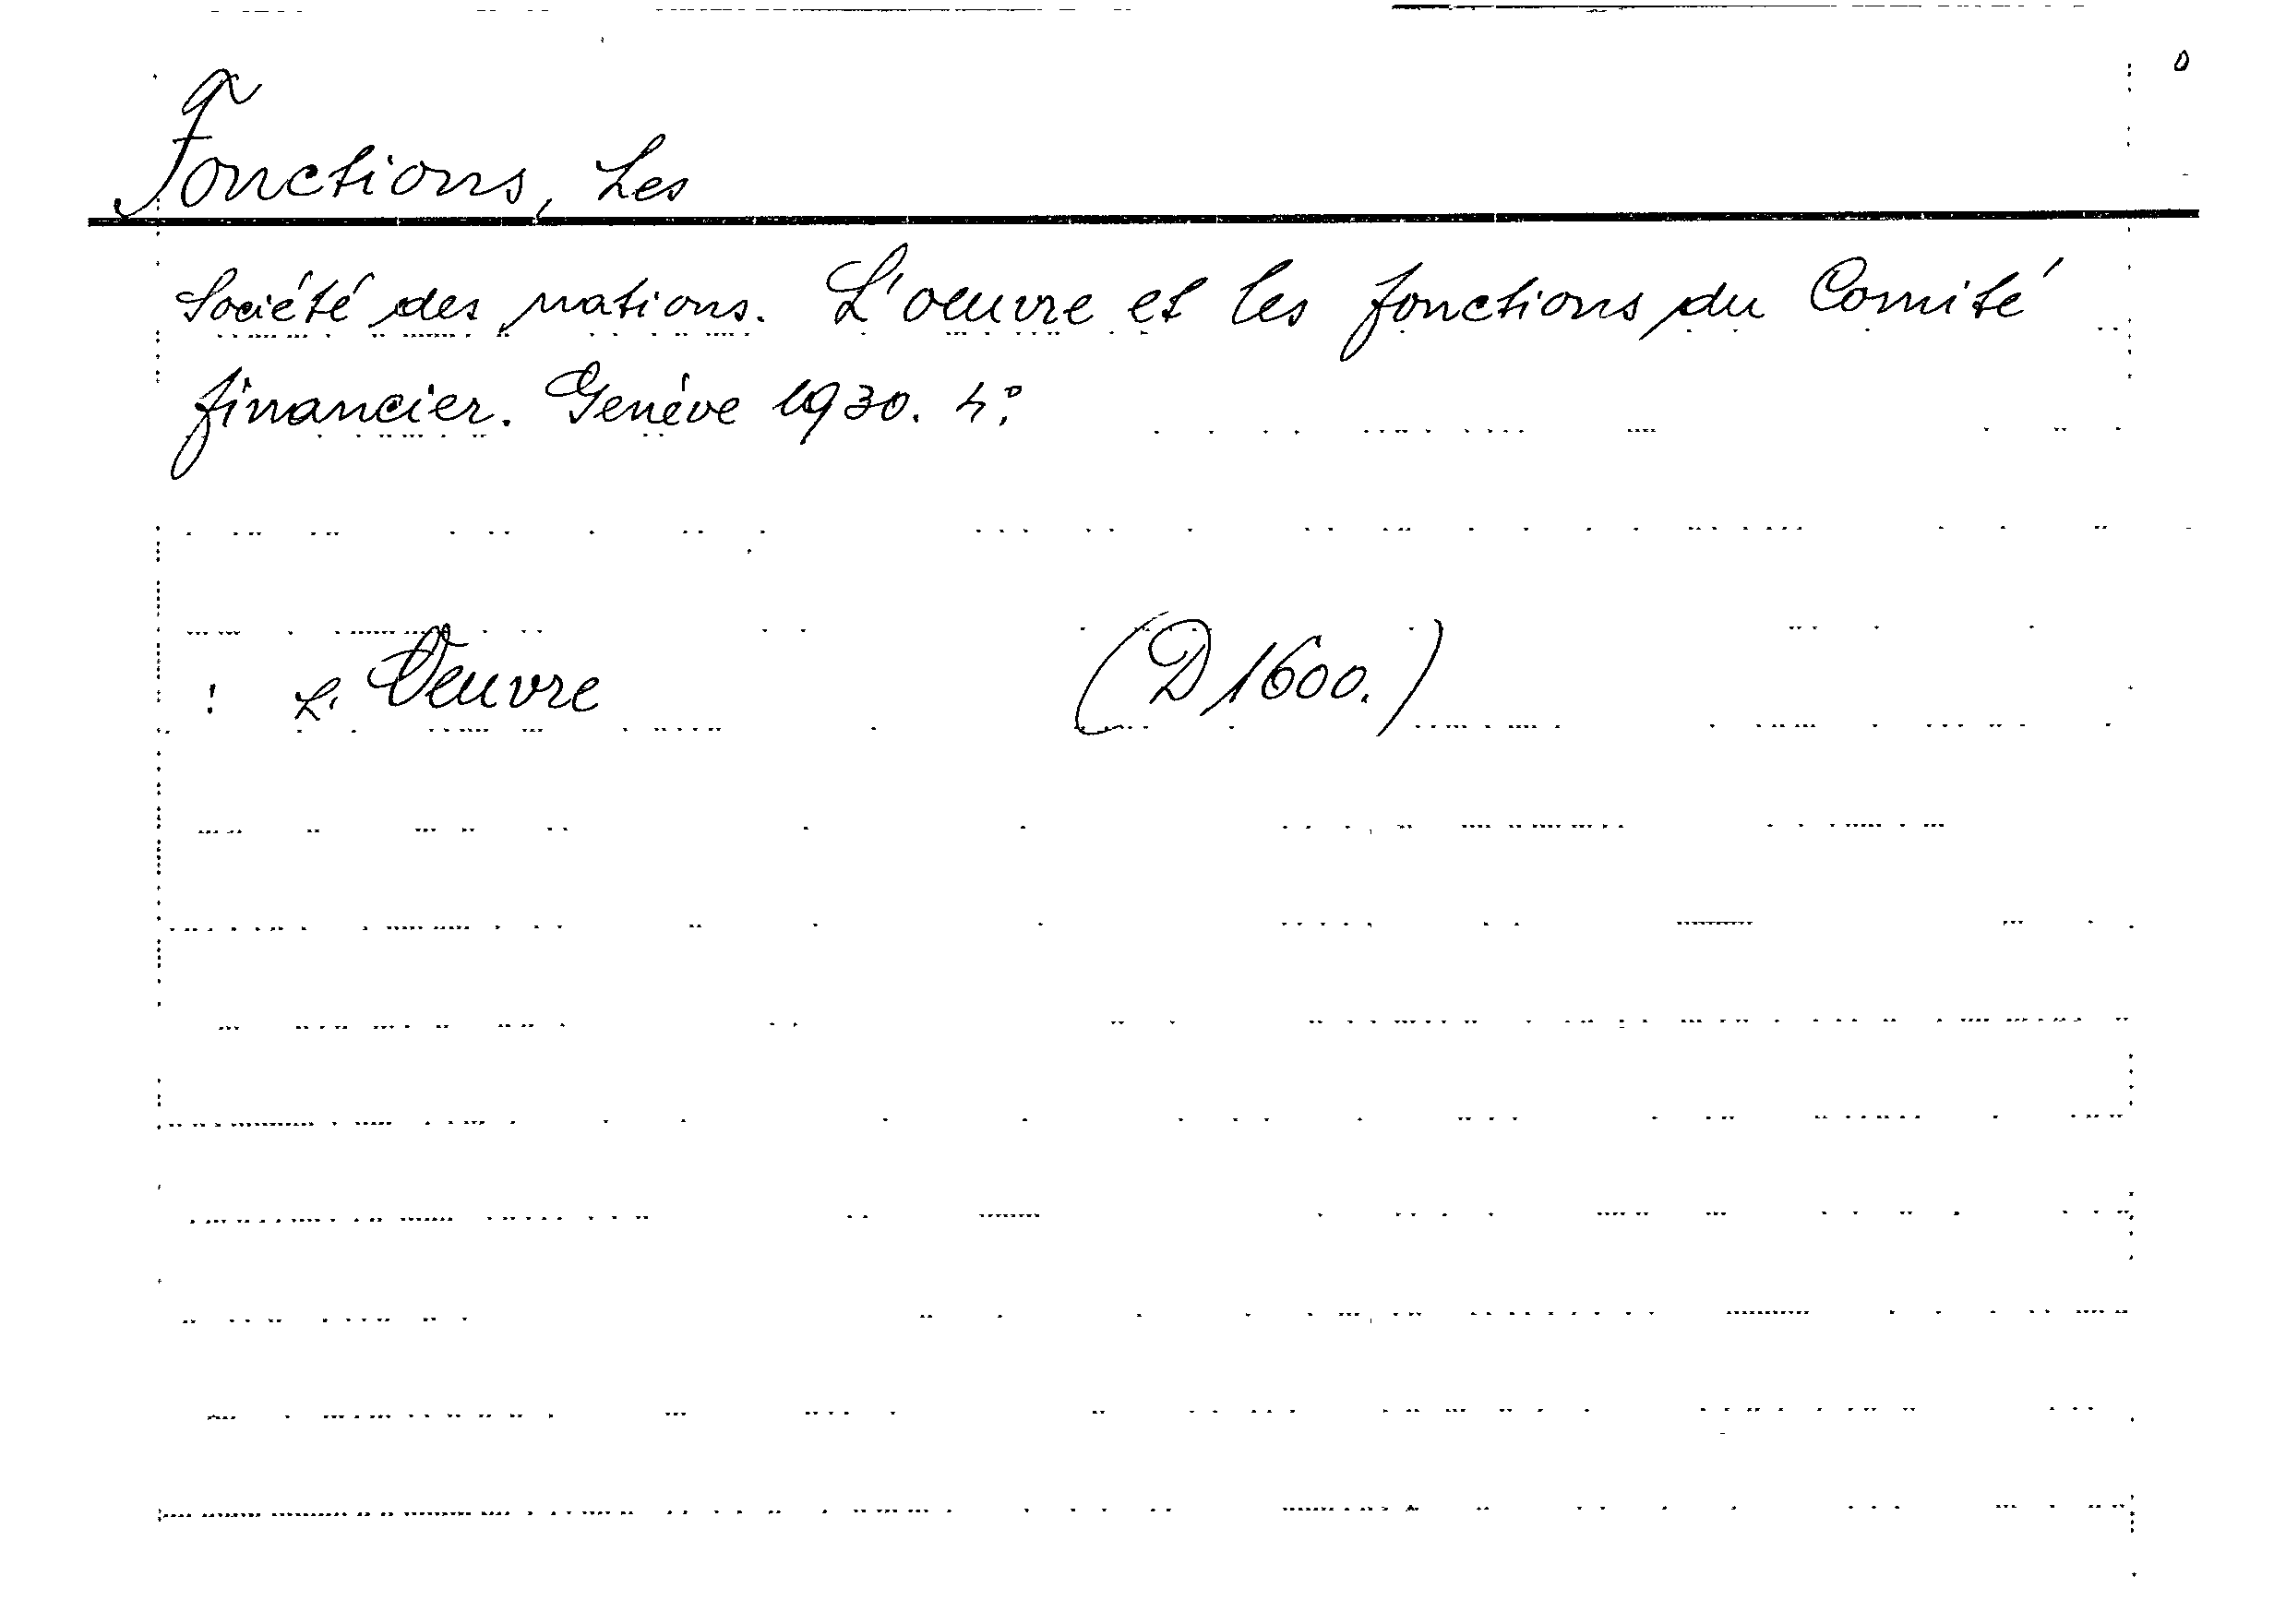 Fonctions, Les
Société des nations. L'oeuvre et les fonctions du Comité
financier. Genève 1930. 4°.
! L'Oeuvre (D 1600.)